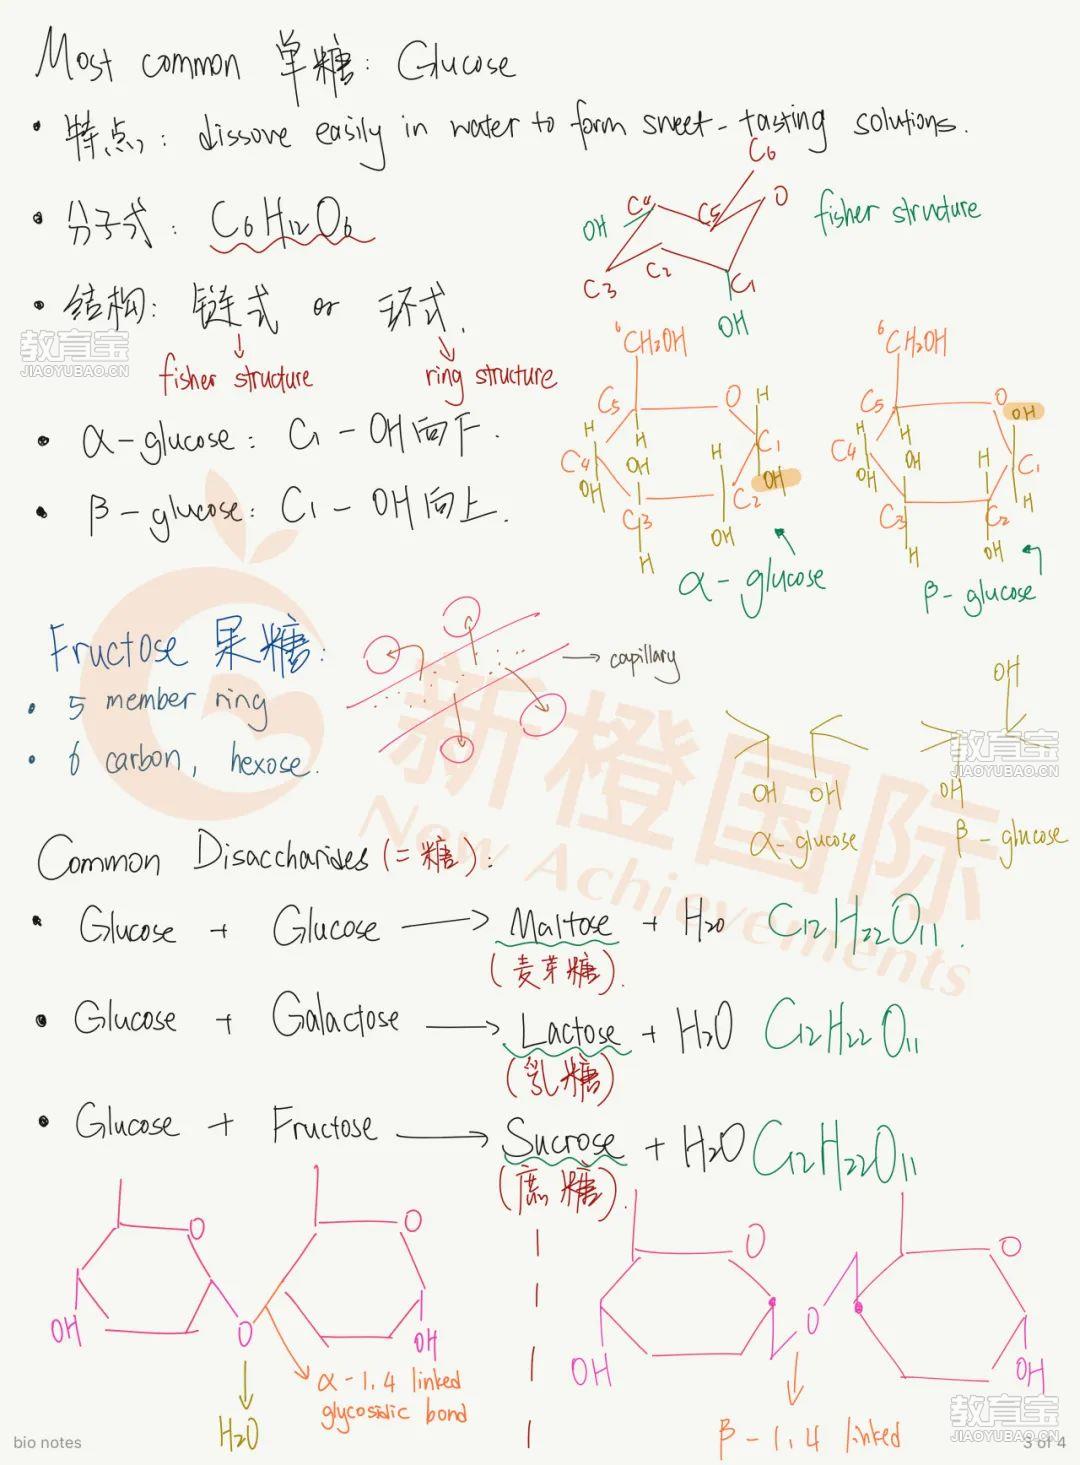 Most common 单糖: Glucose
• 特点: dissove easily in water to form sweet-tasting solutions.
• 分子式: C6H12O6
• 结构: 链式 or 环式.
fisher structure
ring structure
• α-glucose: C1-OH向下.
• β-glucose: C1-OH向上.
C6
C4
C5
O
OH
C3
C2
C1
OH
fisher structure
6CH2OH
C5
O
H
H
H
C1
C4
OH
H
OH
OH
C2
C3
OH
H
α-glucose
6CH2OH
C5
O
OH
H
H
H
C4
OH
C1
OH
H
C3
C2
H
OH
β-glucose
Fructose 果糖:
• 5 member ring
• 6 carbon, hexose.
capillary
OH
OH
OH
OH
α-glucose
β-glucose
Common Disaccharides(二糖):
• Glucose + Glucose → Maltose + H2O C12H22O11.
(麦芽糖).
• Glucose + Galactose → Lactose + H2O C12H22O11
(乳糖)
• Glucose + Fructose → Sucrose + H2O C12H22O11
(蔗糖).
O
O
OH
O
OH
H2O
α-1,4 linked
glycosidic bond
O
O
O
OH
OH
β-1,4 linked
bio notes
3 of 4
教育宝
JIAOYUBAO.CN
教育宝
JIAOYUBAO.CN
教育宝
JIAOYUBAO.CN
新橙国际
New Achievements